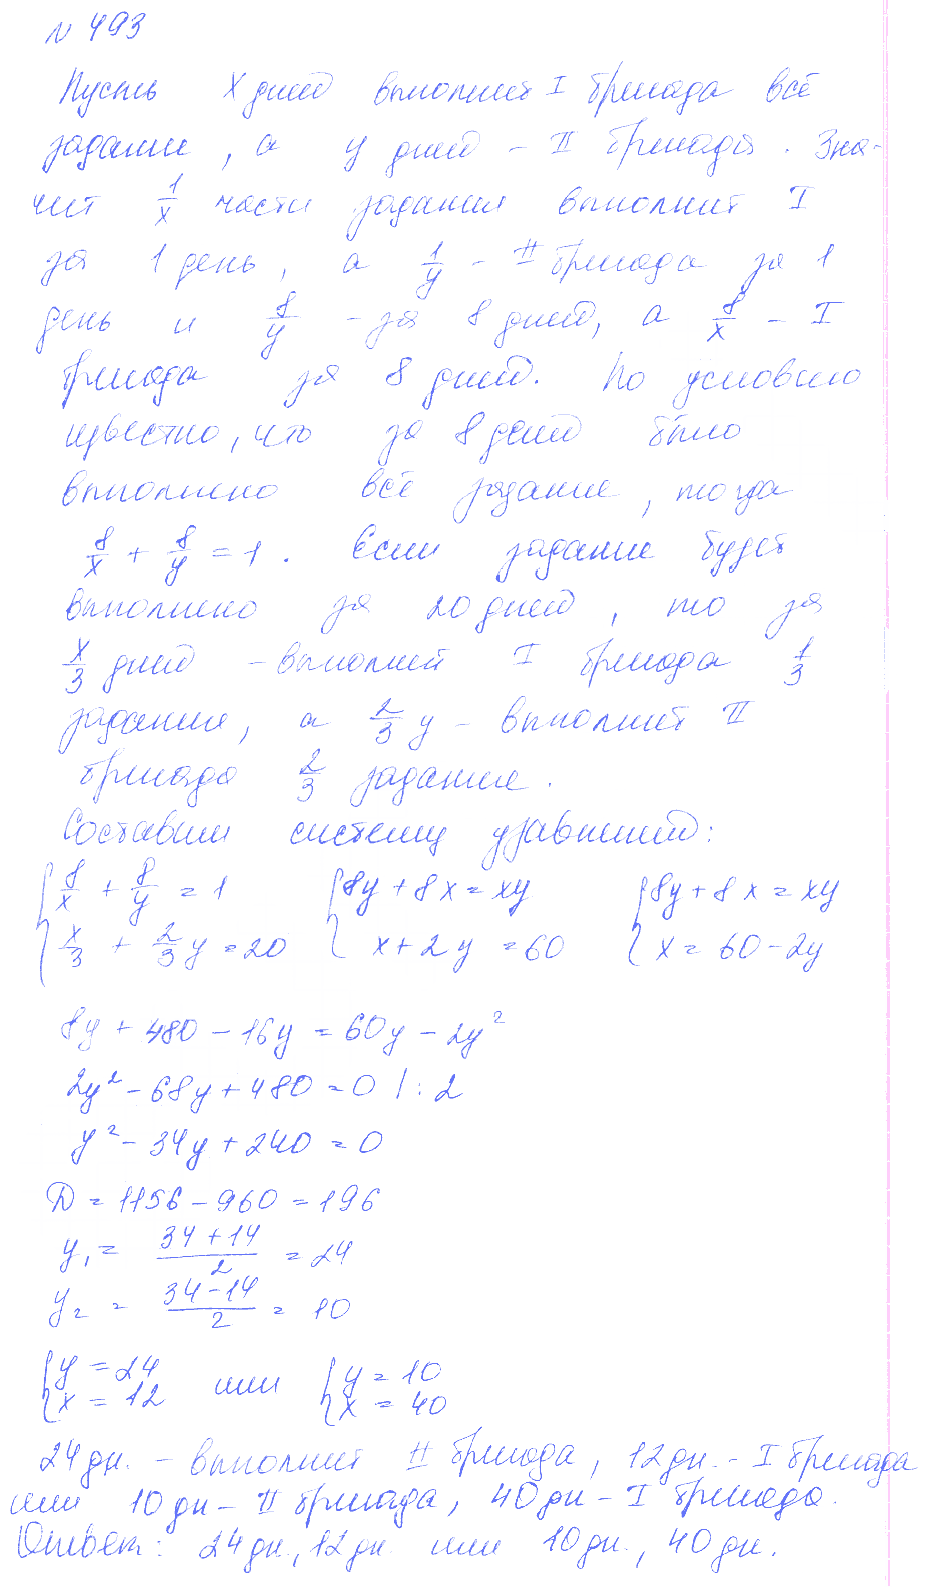 N 493
Пусть x дней выполнит I бригада всё
задание, а y дней - II бригада. Зна-
чит 1/x часть задания выполнит I
за 1 день, а 1/y - II бригада за 1
день и 8/y - за 8 дней, а 8/x - I
бригада за 8 дней. По условию
известно, что за 8 дней было
выполнено всё задание, тогда
8/x + 8/y = 1. Если задание будет
выполнено за 20 дней, то за
x/3 дней - выполнит I бригада 1/3
задания, а 2/3 y - выполнит II
бригада 2/3 задание.
Составим систему уравнений:
{ 8/x + 8/y = 1 { 8y + 8x = xy { 8y + 8x = xy
{ x/3 + 2/3 y = 20 { x + 2y = 60 { x = 60 - 2y
8y + 480 - 16y = 60y - 2y²
2y² - 68y + 480 = 0 | : 2
y² - 34y + 240 = 0
D = 1156 - 960 = 196
y₁ = (34 + 14)/2 = 24
y₂ = (34 - 14)/2 = 10
{ y = 24 или { y = 10
{ x = 12 { x = 40
24 дн. - выполнит II бригада, 12 дн. - I бригада
или 10 дн - II бригада, 40 дн - I бригада.
Ответ: 24 дн., 12 дн. или 10 дн., 40 дн.